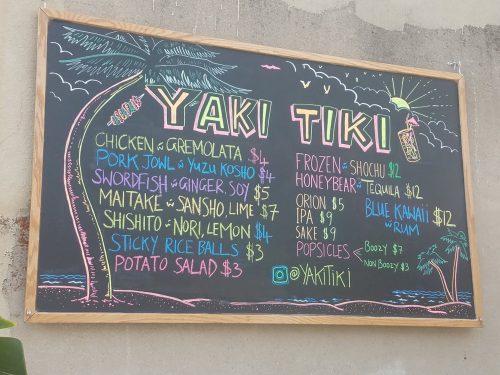 YAKI TIKI
CHICKEN w/ GREMOLATA $4
PORK JOWL w/ YUZU KOSHO $4
SWORDFISH w/ GINGER, SOY $5
MAITAKE w/ SANSHO, LIME $7
SHISHITO w/ NORI, LEMON $4
STICKY RICE BALLS $3
POTATO SALAD $3
FROZEN w/ SHOCHU $12
HONEYBEAR w/ TEQUILA $12
ORION $5
IPA $9
SAKE $9
BLUE KAWAII w/ RUM $12
POPSICLES
BOOZY $7
NON BOOZY $3
@YAKITIKI